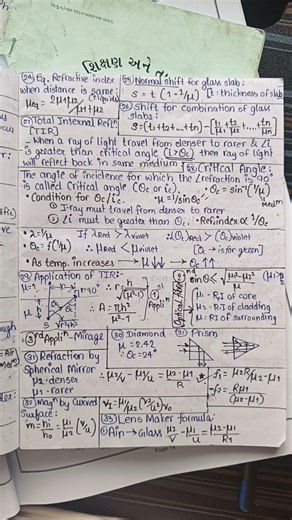 શિક્ષણ અને
(24) Eq. Refractive index when distance is same:
μeq = 2μ1μ2 / μ1+μ2 (2 liquids)
(25) Normal shift for glass slab:
S = t(1 - 1/μ) [t = thickness of slab
(26) Shift for combination of glass slabs:
S = (t1+t2+...+tn) - [t1/μ1 + t2/μ2 ..... tn/μn]
(27) Total Internal Refln [TIR]
- When a ray of light travel from denser to rarer & ∠i
is greater than critical angle (i>θc) then ray of light
will reflect back in same medium.
(28) Critical Angle:
The angle of incidence for which ∠refraction is 90°
is called Critical angle (θc or ic). • θc = sin⁻¹(1/μ)
• Condition for θc/ic. • μ = 1/sinθc
① Ray must travel from denser to rarer
② ∠i must be greater than θc. • Ref. index ∝ 1/θc
• λ = 1/μ If λRed > λviolet
• θc = f(1/μ) ∴ μRed < μviolet
∴ (θc)Red > (θc)violet
[θc → is for green]
• As temp. increases → μ↓↓ → θc↑↑
(29) Application of TIR:-
μ=1
r=90°
r = h/√(μ²-1)
∴ A = πh²/μ²-1
① 1st Appli
2nd
Optical fibre
sinθ ≤ √(μ2²-μ1²)/μ
μ1 - R.I of core
μ2 - R.I of cladding
μ - R.I of surrounding
3rd Appli - Mirage
(30) Diamond
μ = 2.42
θc = 24°
(31) Prism
(31) Refraction by Spherical Mirror
μ2 - denser
μ1 - rarer
∴ μ2/v - μ1/u = μ2-μ1/R
• f1 = μ2R/μ2-μ1
-f2 = Rμ1/(μ2-μ1)
(32) Magn by Curved Surface:
m = hi/ho = μ1/μ2 (v/u)
(33) Lens Maker formula:
① Air → Glass μ2/v - μ1/u = μ2-μ1/R1